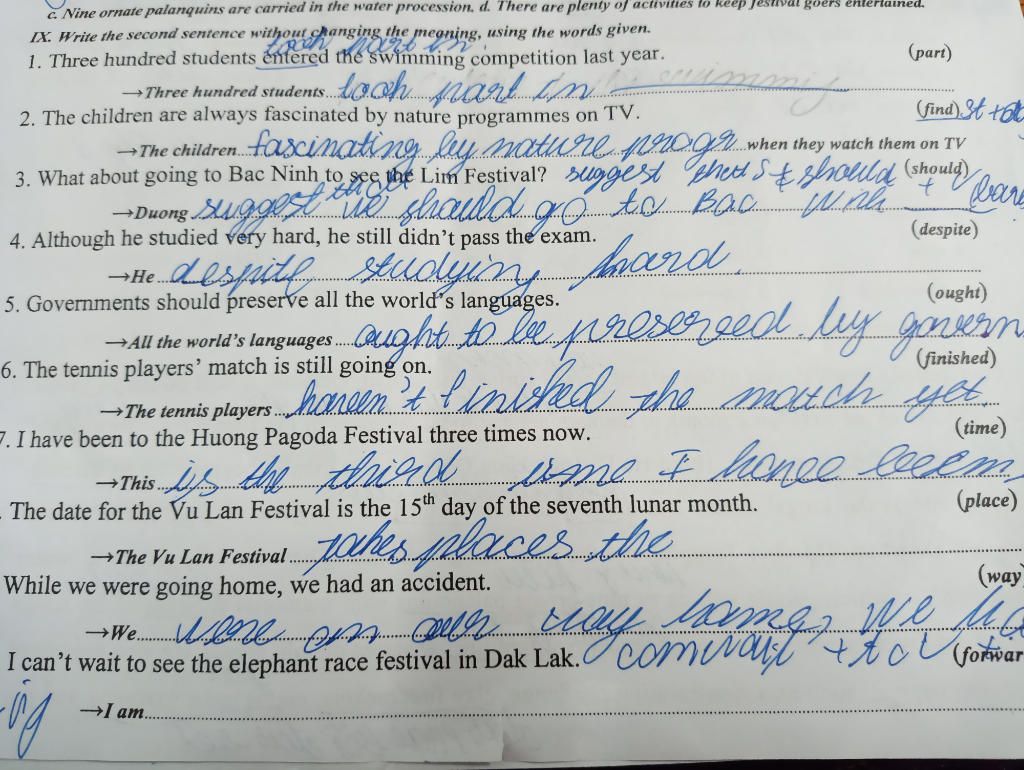 c. Nine ornate palanquins are carried in the water procession. d. There are plenty of activities to keep festival goers entertained.
IX. Write the second sentence without changing the meaning, using the words given.
took part in
1. Three hundred students entered the swimming competition last year. (part)
→Three hundred students took part in the swimming
2. The children are always fascinated by nature programmes on TV. (find) St +
→The children fascinating by nature progr when they watch them on TV
3. What about going to Bac Ninh to see the Lim Festival? suggest that S + should (should)
→Duong suggest that we should go to Bac Ninh
4. Although he studied very hard, he still didn't pass the exam. (despite)
→He despite studying hard.
5. Governments should preserve all the world's languages. (ought)
→All the world's languages ought to be preserved by govern
6. The tennis players' match is still going on. (finished)
→The tennis players haven't finished the match yet.
7. I have been to the Huong Pagoda Festival three times now. (time)
→This is the third time I have been
The date for the Vu Lan Festival is the 15th day of the seventh lunar month. (place)
→The Vu Lan Festival takes places the
While we were going home, we had an accident. (way)
→We were on our way home, we ha
I can't wait to see the elephant race festival in Dak Lak. (forwar
ig →I am